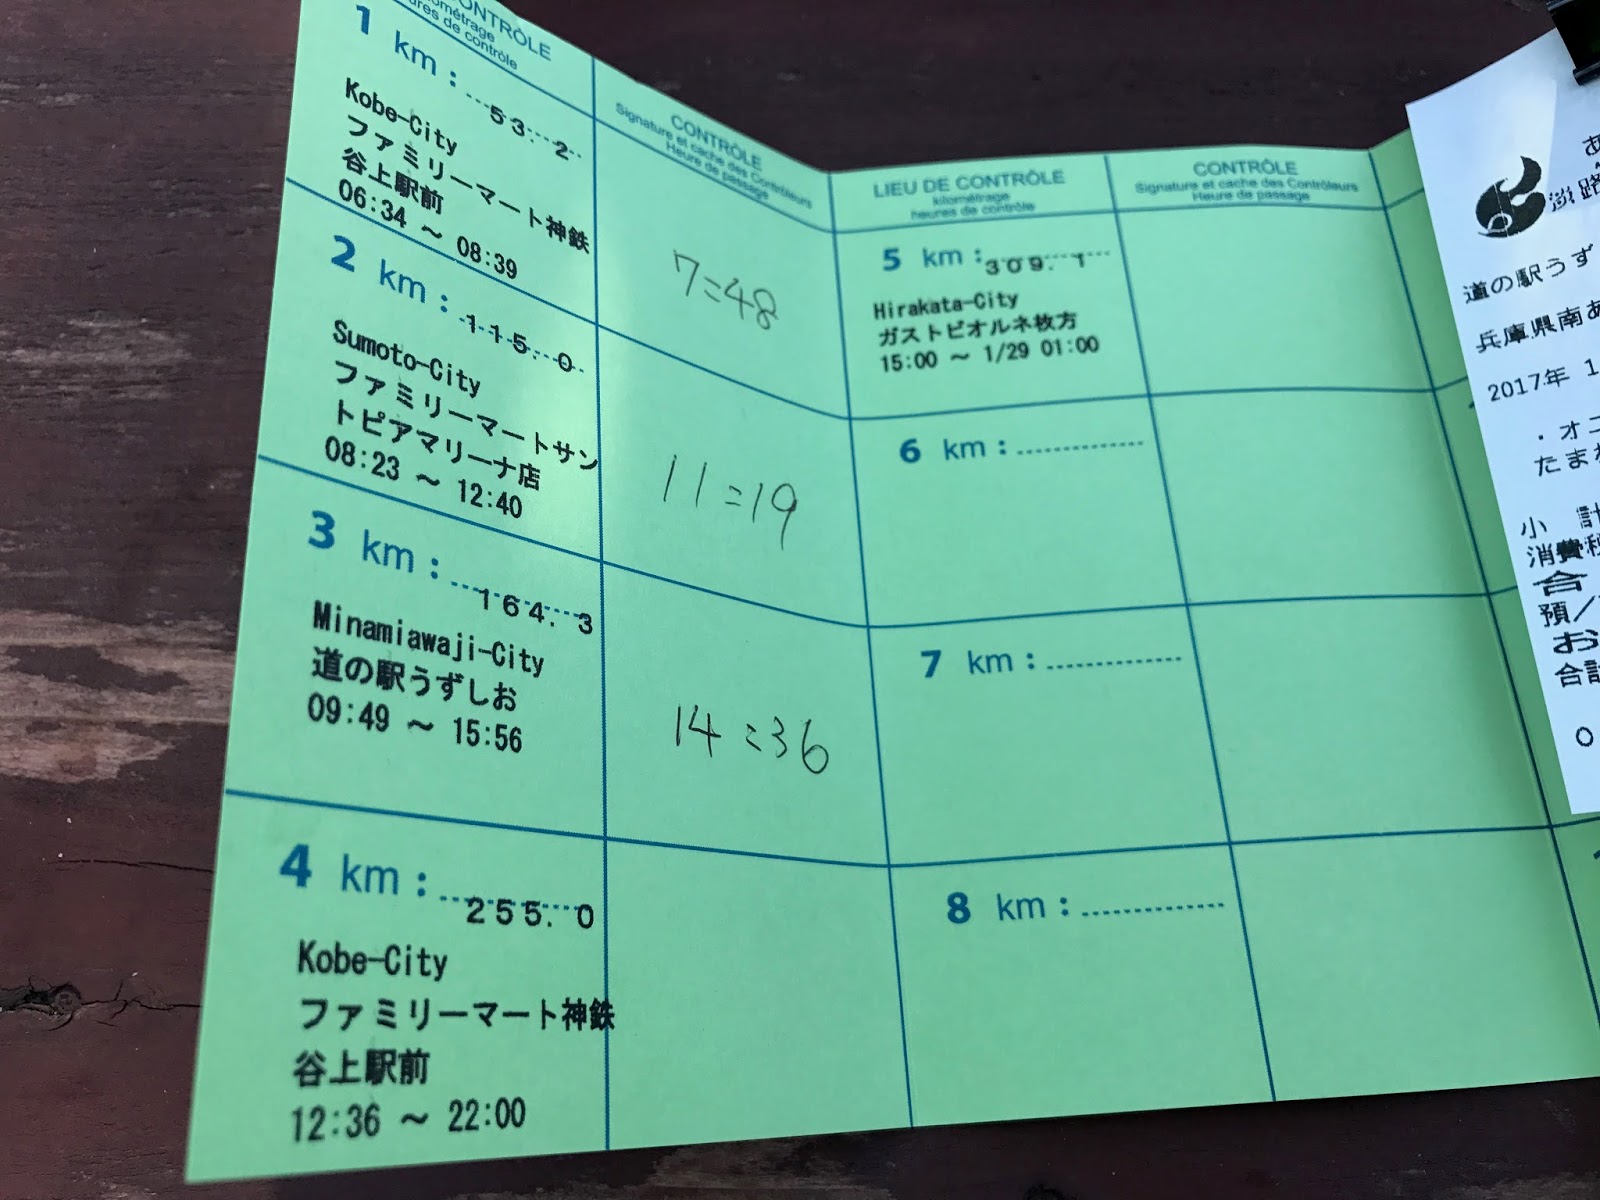 CONTRÔLE
kilométrage
heures de contrôle
1 km : 53.2
Kobe-City
ファミリーマート神鉄
谷上駅前
06:34 ～ 08:39
2 km : 115.0
Sumoto-City
ファミリーマートサン
トピアマリーナ店
08:23 ～ 12:40
3 km : 164.3
Minamiawaji-City
道の駅うずしお
09:49 ～ 15:56
4 km : 255.0
Kobe-City
ファミリーマート神鉄
谷上駅前
12:36 ～ 22:00
CONTRÔLE
Signature et cache des Contrôleurs
Heure de passage
7:48
11:19
14:36
LIEU DE CONTRÔLE
kilométrage
heures de contrôle
5 km : 309.1
Hirakata-City
ガストビオルネ枚方
15:00 ～ 1/29 01:00
6 km :
7 km :
8 km :
CONTRÔLE
Signature et cache des Contrôleurs
Heure de passage
あ
淡路
道の駅うず
兵庫県南あ
2017年 1
・オニ
たまね
小 計
消費税
合
預/
お
合計
0